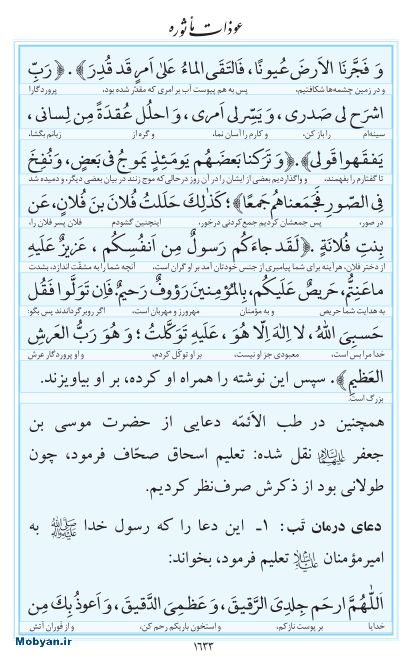 عوذات مأثوره
وَ فَجَّرنَا الاَرضَ عُيونًا، فَالتَقَى الماءُ عَلىٰ اَمرٍ قَد قُدِرَ﴾. ﴿رَبِّ
و در زمین چشمه‌ها شکافتیم، پس به هم پیوست آب بر امری که مقدّر شده بود، پروردگارا
اشرَح لی صَدری، وَ یَسِّر لی اَمری، وَ احلُل عُقدَةً مِن لِسانی،
سینه‌ام را باز کن، و کارم را آسان نما، و گره از زبانم بگشا،
یَفقَهوا قَولی﴾. ﴿وَ تَرَکنا بَعضَهُم یَومَئِذٍ یَموجُ فی بَعضٍ، وَ نُفِخَ
تا گفتارم را بفهمند، و واگذاردیم بعضی از ایشان را در آن روز در حالی‌که موج زنند در میان بعضی دیگر، و دمیده شد
فِی الصّورِ فَجَمَعناهُم جَمعًا﴾؛ کَذٰلِکَ حَلَلتُ فُلانَ بنَ فُلانٍ، عَن
در صور، پس جمعشان کردیم جمع‌کردنی درخور، اینچنین گشودم فلان پسر فلان را،
بِنتِ فُلانَةَ. ﴿لَقَد جاءَکُم رَسولٌ مِن اَنفُسِکُم، عَزیزٌ عَلَیهِ
از دختر فلان، هر آینه برای شما پیامبری از جنس خودتان آمد بر او گران است، آنچه شما را به مشقّت اندازد، بشدت
ماعَنِتُّم، حَریصٌ عَلَیکُم، بِالمُؤمِنینَ رَؤوفٌ رَحیمٌ. فَاِن تَوَلَّوا فَقُل
به هدایت شما حریص و به مؤمنان مهرورز و مهربان است، اگر روبرگرداندند پس بگو:
حَسبِیَ اللّٰهُ، لا اِلٰهَ اِلّا هُوَ، عَلَیهِ تَوَکَّلتُ؛ وَ هُوَ رَبُّ العَرشِ
خدا مرا بس است، معبودی جز او نیست، بر او توکّل کردم، و او پروردگار عرش
العَظیمِ﴾. سپس این نوشته را همراه او کرده، بر او بیاویزند.
بزرگ است.
همچنین در طب الائمّه دعایی از حضرت موسی بن
جعفر علیهما السلام نقل شده: تعلیم اسحاق صحّاف فرمود، چون
طولانی بود از ذکرش صرف‌نظر کردیم.
دعای درمان تَب: ۱ـ این دعا را که رسول خدا ﷺ به
امیرمؤمنان علیه السلام تعلیم فرمود، بخواند:
اَللّٰهُمَّ ارحَم جِلدِیَ الرَّقیقَ، وَ عَظمِیَ الدَّقیقَ، وَ اَعوذُ بِکَ مِن
خدایا بر پوست نازکم، و استخوان باریکم رحم کن، و از فوران آتش
Mobyan.ir
۱۶۳۳